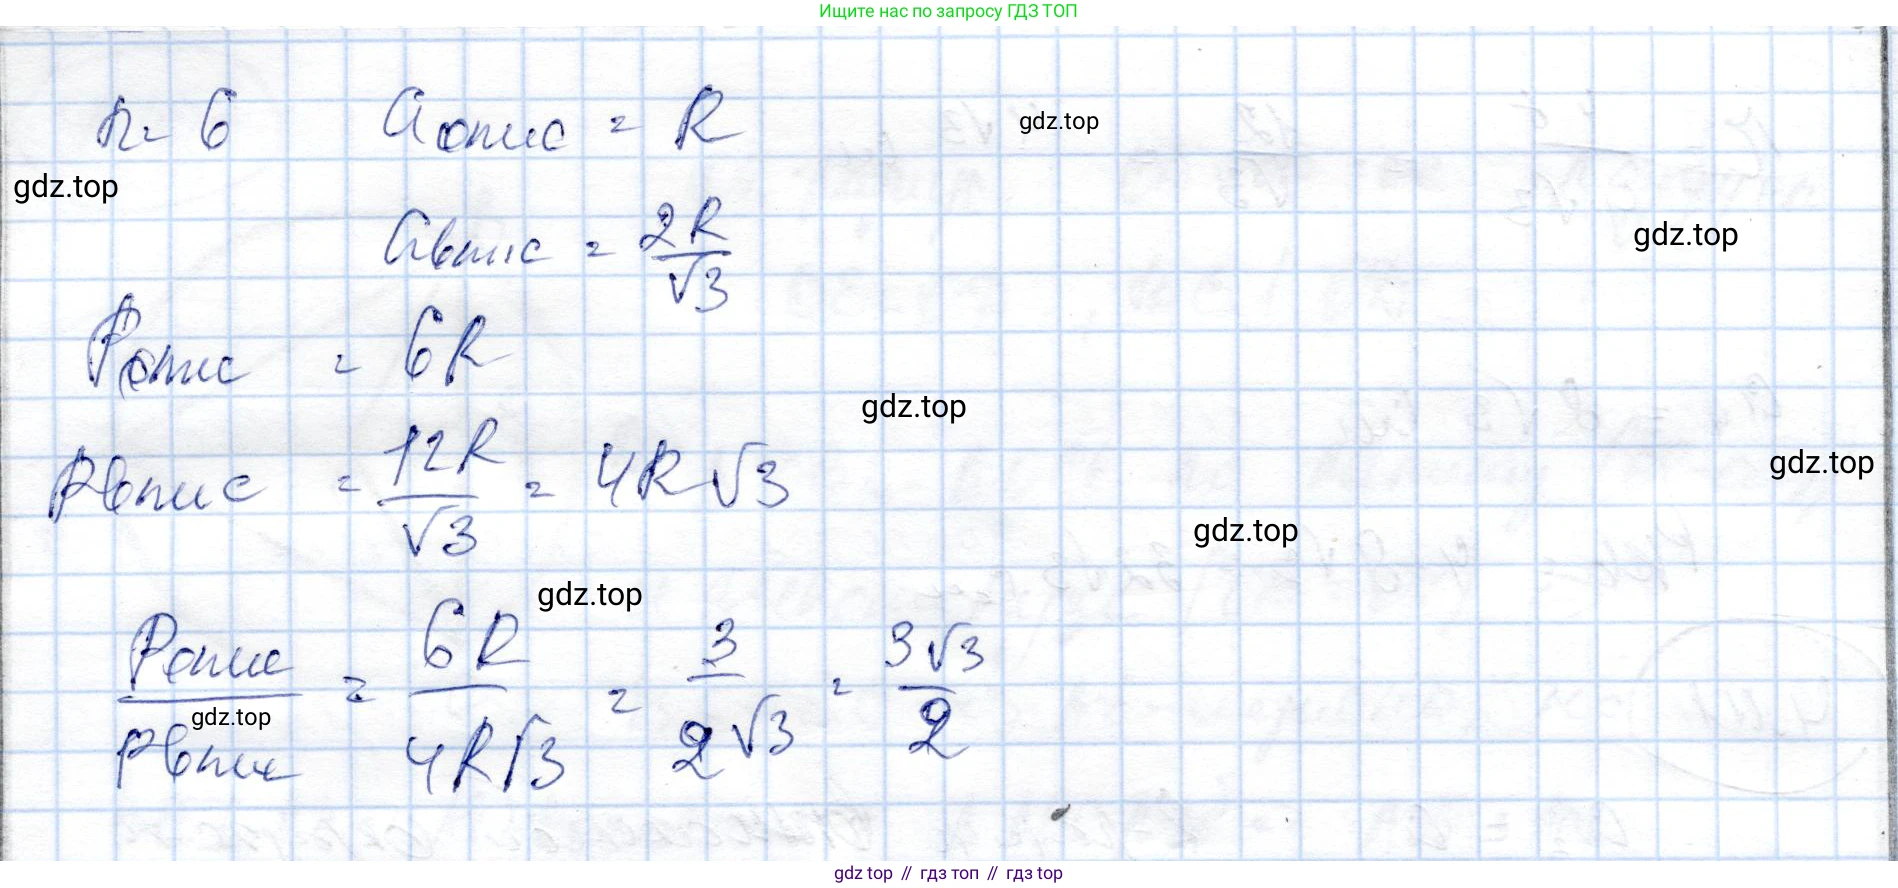 Ищите нас по запросу ГДЗ ТОП
n = 6 aопис = R
gdz.top
gdz.top
aвпис = 2R/√3
gdz.top
Pопис = 6R
gdz.top
Pвпис = 12R/√3 = 4R√3
gdz.top
gdz.top
gdz.top
Pопис/Pвпис = 6R/4R√3 = 3/2√3 = 3√3/2
gdz.top
gdz.top // гдз топ // гдз top